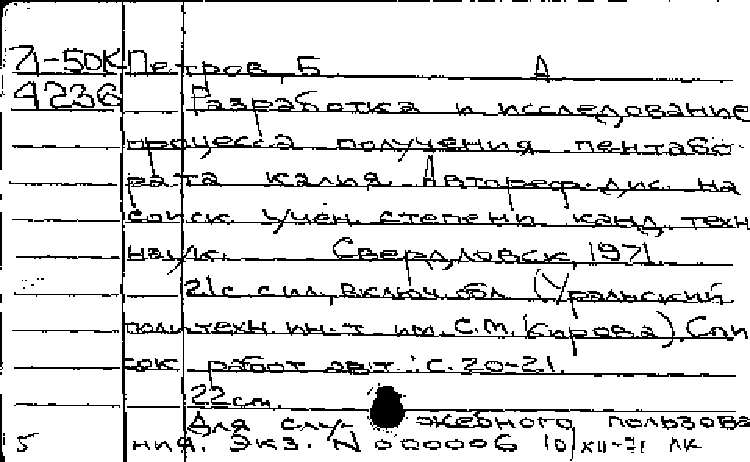 Д-50К Петров, Б А
4236 Разработка и исследование
процесса получения пентабо-
рата калия. Автореф. дис. на
соиск. учен. степени канд. техн
наук. Свердловск, 1971.
21 с. с ил., включ. обл. (Уральский
политехн. ин-т им. С.М. Кирова). Спи
сок работ авт.: с. 20-21.
22 см.
Для служебного пользова
5 ния. Экз. N 000006 10/XII-71 ЛК